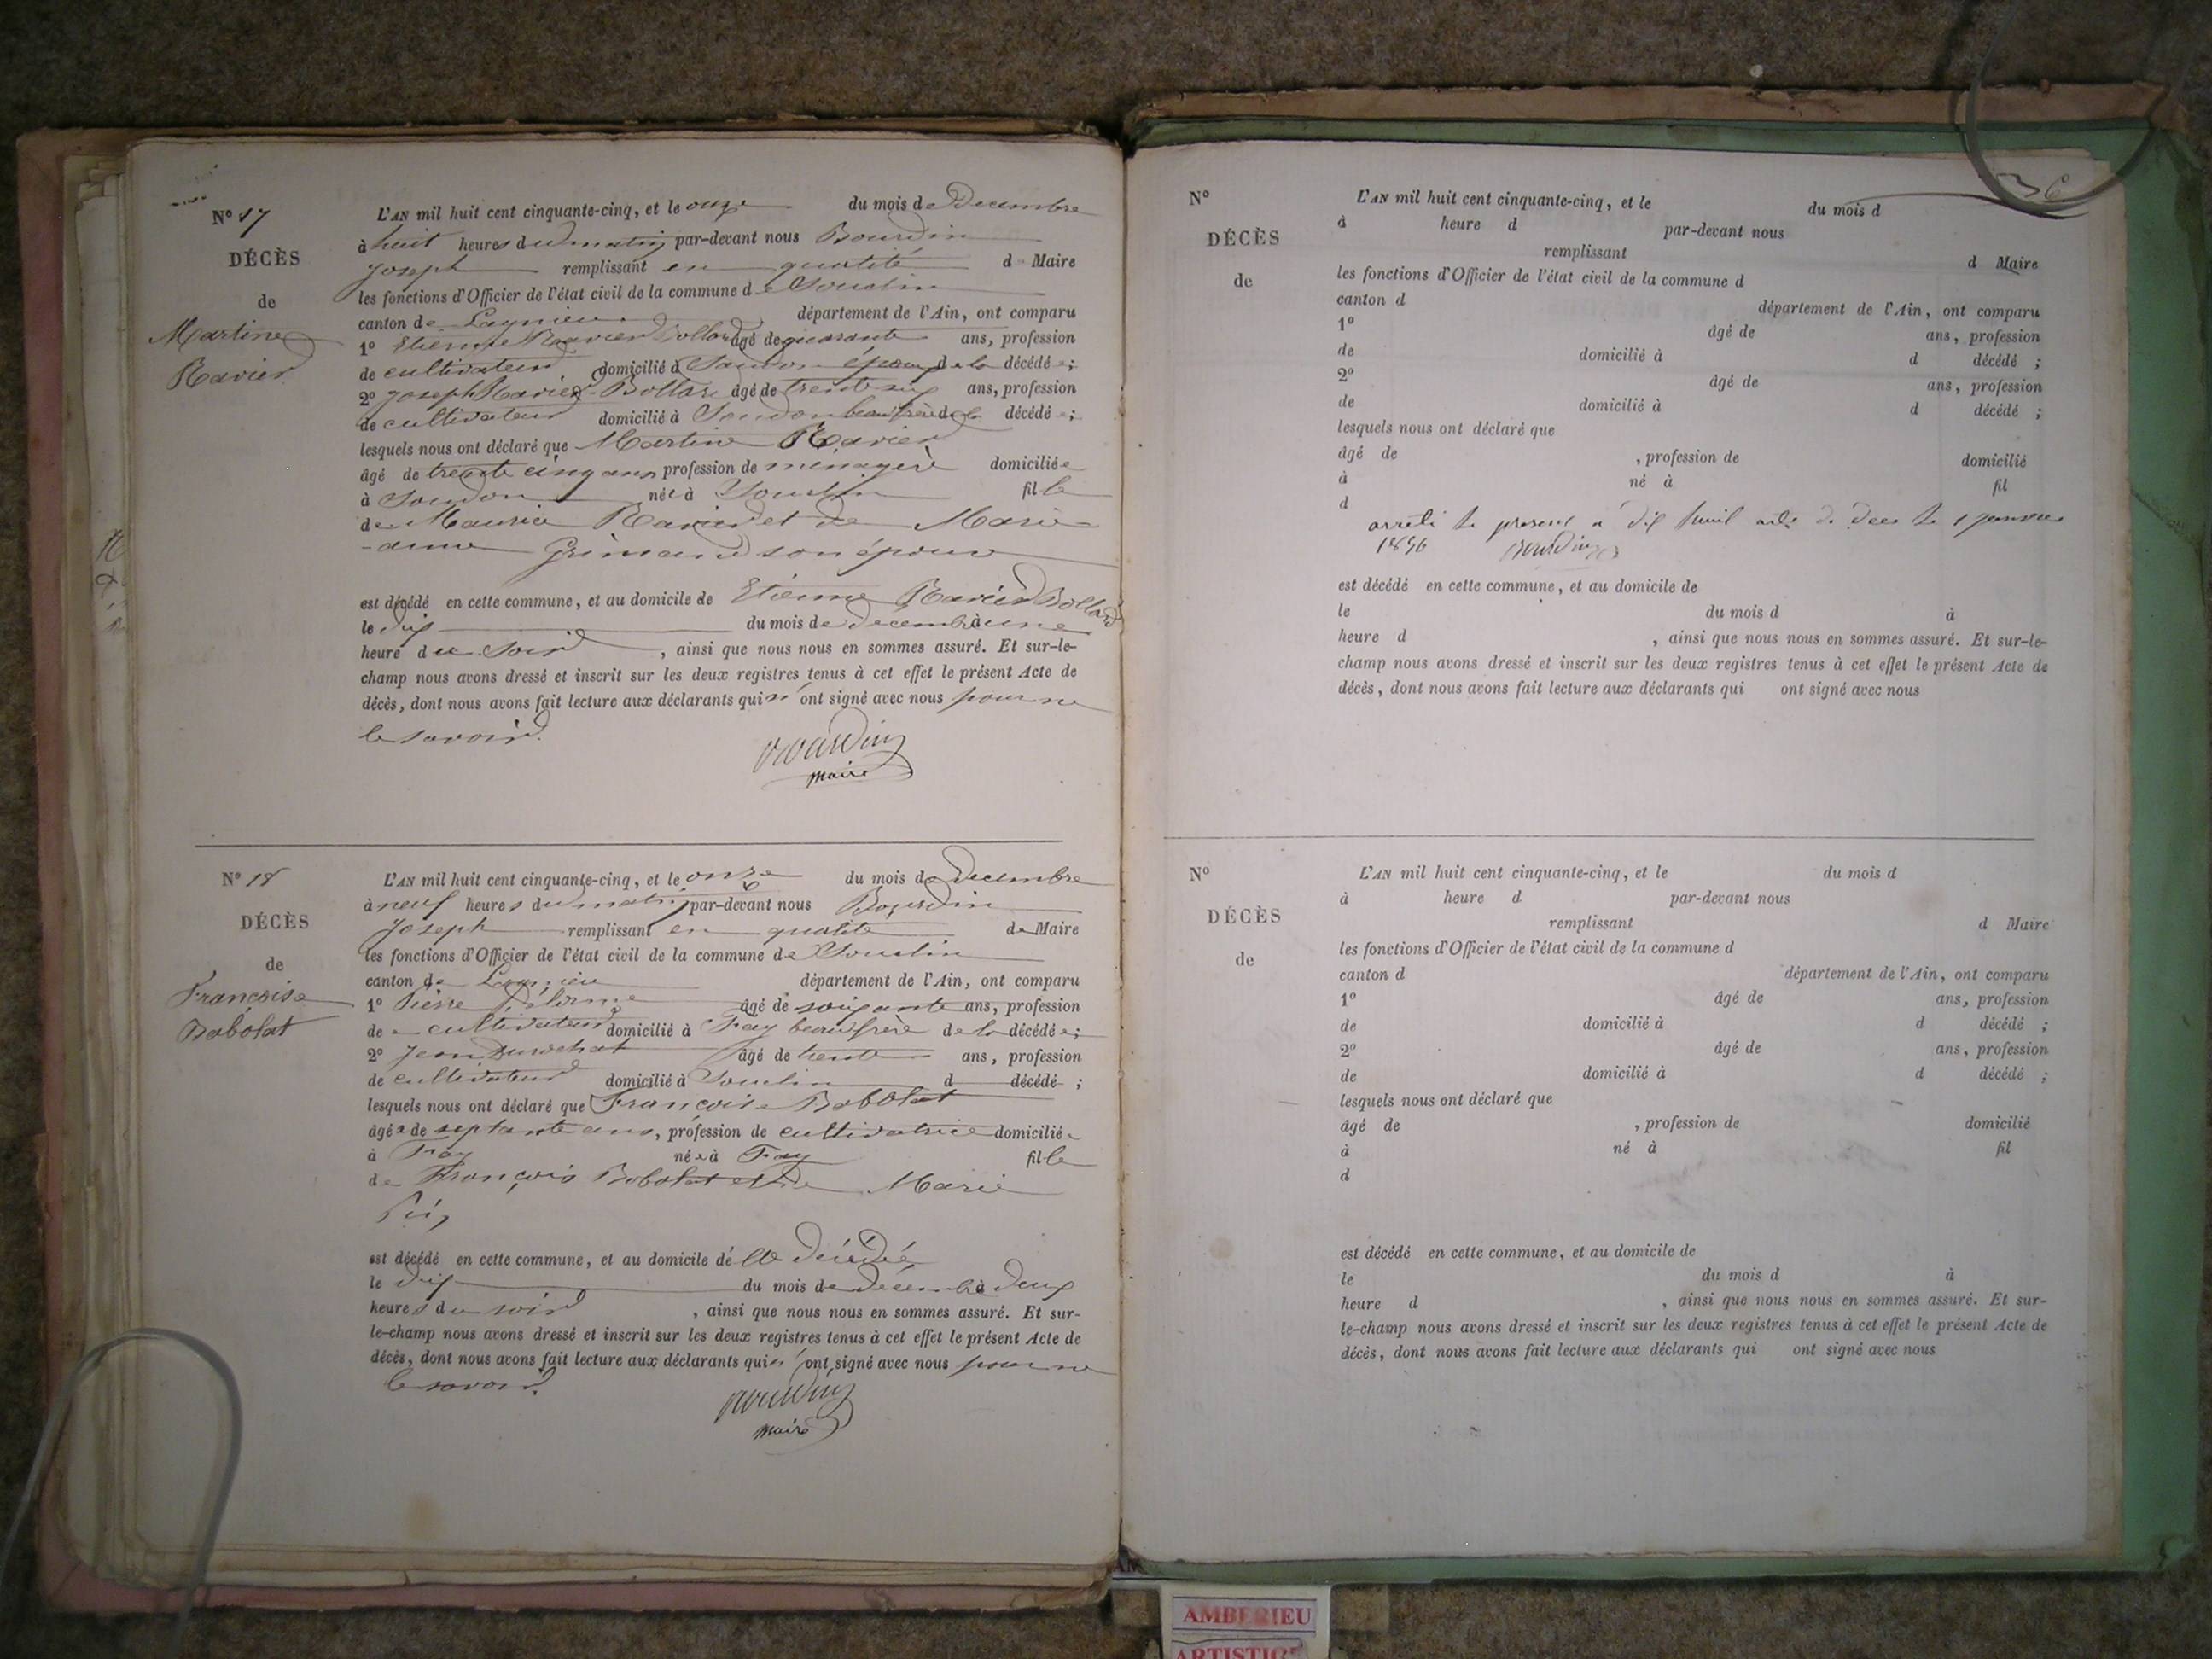 N° 17
DÉCÈS
de
Martine
Ravier
L'AN mil huit cent cinquante-cinq, et le onze du mois de Decembre
à huit heures du matin par-devant nous Bourdin
Joseph remplissant en qualité d Maire
les fonctions d'Officier de l'état civil de la commune de Souclin
canton de Lagnieu département de l'Ain, ont comparu
1° Etienne Ravier Bollard âgé de quarante ans, profession
de cultivateur domicilié à Soudon époux de la décédée;
2° Joseph Ravier-Bollard âgé de trente six ans, profession
de cultivateur domicilié à Soudon beaufrère de la décédée;
lesquels nous ont déclaré que Martine Ravier
âgé de trente cinq ans profession de ménagère domiciliée
à Soudon née à Souclin fille
de Maurice Ravier et de Marie
-anne Grimand son épouse
est décédé en cette commune, et au domicile de Etienne Ravier Bollard
le dix du mois de décembre à une
heure du soir, ainsi que nous nous en sommes assuré. Et sur-le-
champ nous avons dressé et inscrit sur les deux registres tenus à cet effet le présent Acte de
décès, dont nous avons fait lecture aux déclarants qui n'ont signé avec nous pour ne
le savoir.
Bourdin
maire
N° 18
DÉCÈS
de
Françoise
Babolat
L'AN mil huit cent cinquante-cinq, et le onze du mois de Decembre
à neuf heures du matin par-devant nous Bourdin
Joseph remplissant en qualité de Maire
les fonctions d'Officier de l'état civil de la commune de Souclin
canton de Lagnieu département de l'Ain, ont comparu
1° Pierre Delorme âgé de soixante ans, profession
de cultivateur domicilié à Fay beaufrère de la décédée;
2° Jean âgé de trente ans, profession
de cultivateur domicilié à Souclin d décédé ;
lesquels nous ont déclaré que Françoise Babolat
âgée de septante ans, profession de cultivatrice domiciliée
à Fay née à Fay fille
de François Babolat et de Marie
est décédé en cette commune, et au domicile de la décédée
le dix du mois de décembre à deux
heures du soir, ainsi que nous nous en sommes assuré. Et sur-
le-champ nous avons dressé et inscrit sur les deux registres tenus à cet effet le présent Acte de
décès, dont nous avons fait lecture aux déclarants qui n'ont signé avec nous pour ne
le savoir.
Bourdin
maire
N°
DÉCÈS
de
L'AN mil huit cent cinquante-cinq, et le du mois d
à heure d par-devant nous
remplissant d Maire
les fonctions d'Officier de l'état civil de la commune d
canton d département de l'Ain, ont comparu
1° âgé de ans, profession
de domicilié à d décédé ;
2° âgé de ans, profession
de domicilié à d décédé ;
lesquels nous ont déclaré que
âgé de , profession de domicilié
à né à fil
d
arrêté le present a dix huit acte de deces le 1 janvier
1856 Bourdin
est décédé en cette commune, et au domicile de
le du mois d à
heure d , ainsi que nous nous en sommes assuré. Et sur-le-
champ nous avons dressé et inscrit sur les deux registres tenus à cet effet le présent Acte de
décès, dont nous avons fait lecture aux déclarants qui ont signé avec nous
N°
DÉCÈS
de
L'AN mil huit cent cinquante-cinq, et le du mois d
à heure d par-devant nous
remplissant d Maire
les fonctions d'Officier de l'état civil de la commune d
canton d département de l'Ain, ont comparu
1° âgé de ans, profession
de domicilié à d décédé ;
2° âgé de ans, profession
de domicilié à d décédé ;
lesquels nous ont déclaré que
âgé de , profession de domicilié
à né à fil
d
est décédé en cette commune, et au domicile de
le du mois d à
heure d , ainsi que nous nous en sommes assuré. Et sur-
le-champ nous avons dressé et inscrit sur les deux registres tenus à cet effet le présent Acte de
décès, dont nous avons fait lecture aux déclarants qui ont signé avec nous
AMBERIEU